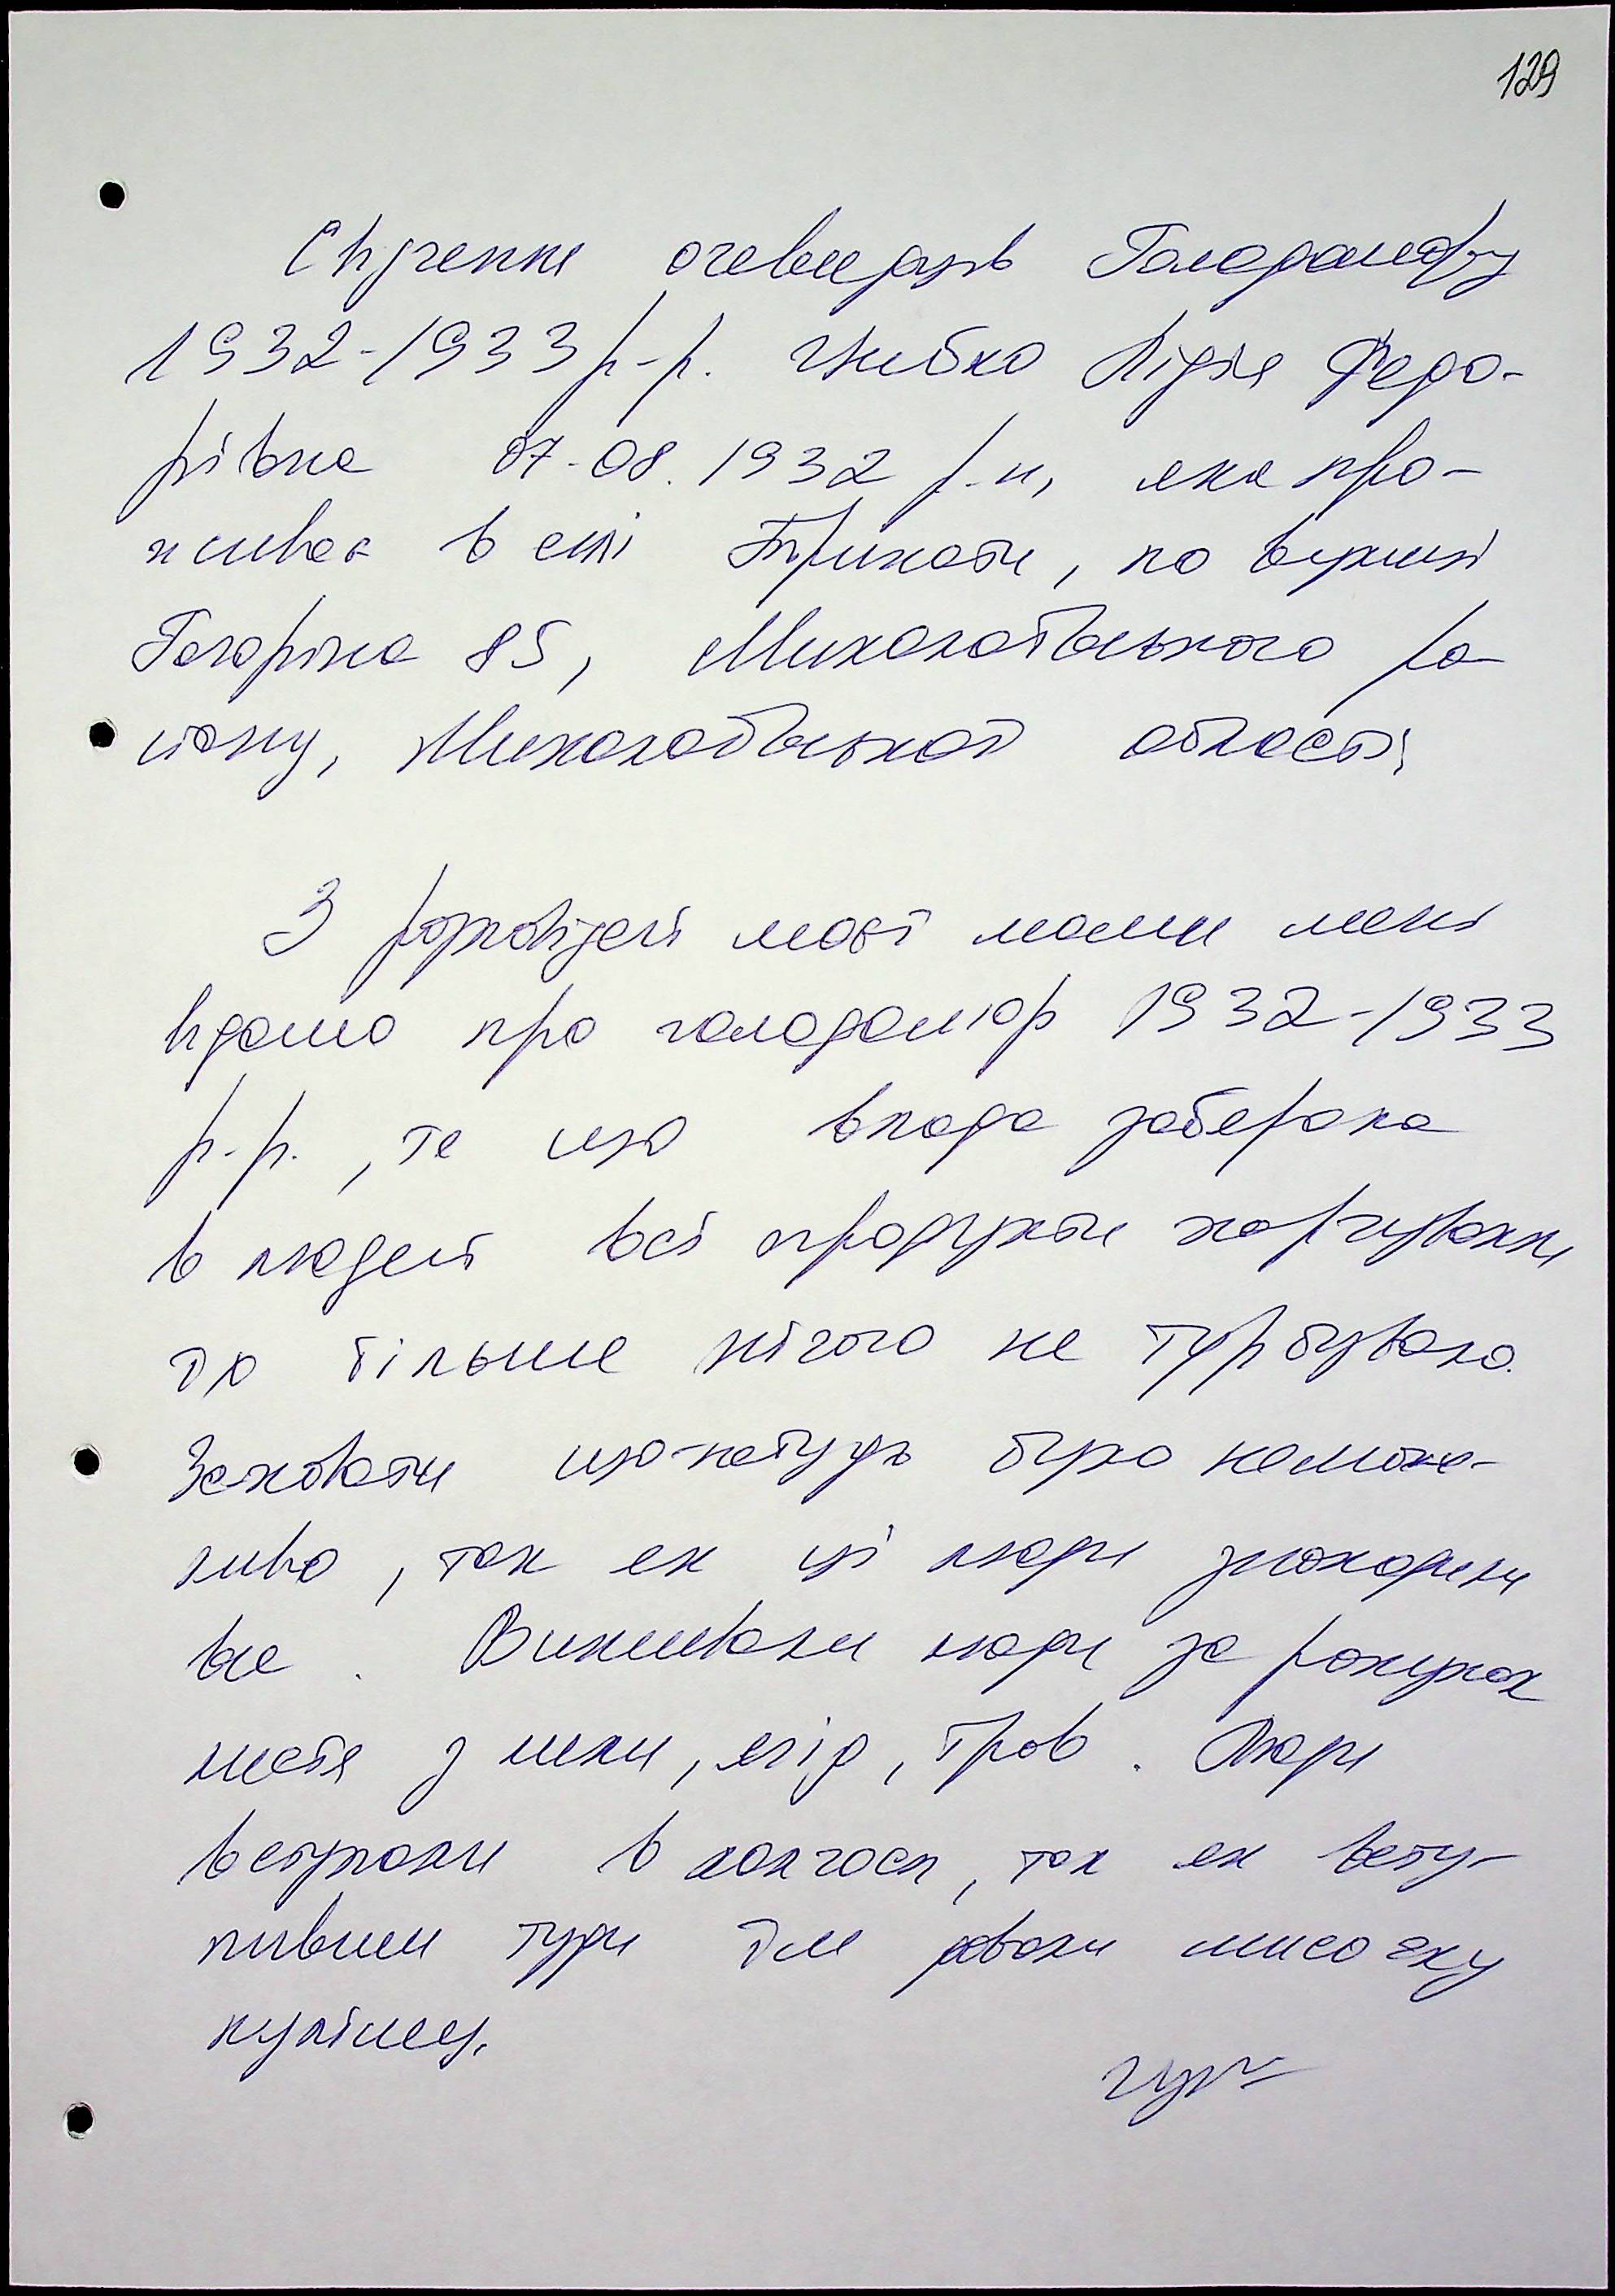 129
Свідчення очевидців Голодомору
1932-1933 р-р. Цибко Лідія Федо-
рівна 07-08.1932 р.н, яка про-
живає в селі Трихати, по вулиці
Гагаріна 85, Миколаївського ра-
йону, Миколаївської області.
З розповідей моєї мами мені
відомо про голодомор 1932-1933
р.-р., те що влада забирала
в людей всі продукти харчування
їх більше нічого не турбувало.
Заховати що-небудь було немож-
ливо, так як ці люди знаходили
все. Виживали люди за рахунок
листя з липи, ягід, трав. Люди
вступали в колгосп, так як всту-
пивши туди їм давали мисочку
кулішу.